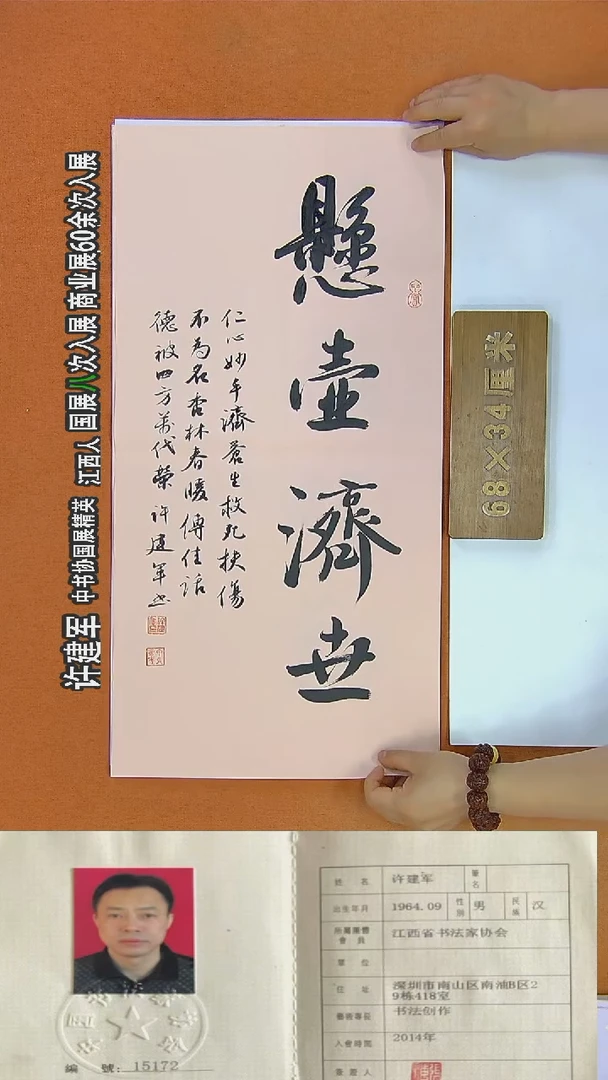 懸壺濟世
仁心妙手濟蒼生救死扶傷
不為名杏林春暖傳佳話
德被四方萬代榮 许建军书
68×34厘米
许建军 中书协国展精英 江西人 国展八次入展 商业展60余次入展
姓名 许建军 筆名
出生年月 1964.09 性別 男 民族 汉
所屬團體會員 江西省书法家协会
單位
住址 深圳市南山区南油B区2
9栋418室
藝術專長 书法创作
入會時間 2014年
簽證人
編號:15172